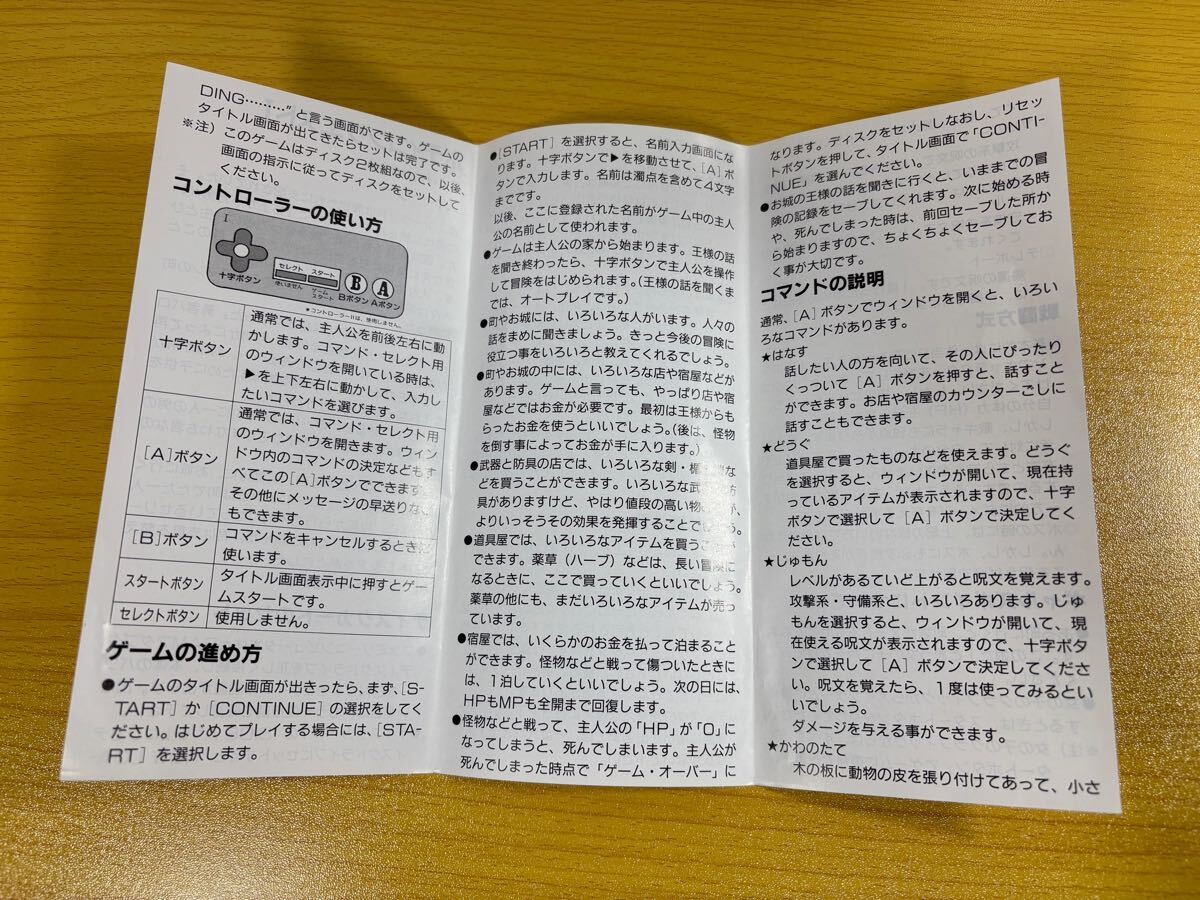 DING………" と言う画面がでます。ゲームの
タイトル画面が出てきたらセットは完了です。
※注）このゲームはディスク2枚組なので、以後、
画面の指示に従ってディスクをセットして
ください。
コントローラーの使い方
I
セレクト スタート
十字ボタン
使いません
ゲーム
スタート
B A
Bボタン Aボタン
＊コントローラーIIは、使用しません。
十字ボタン
通常では、主人公を前後左右に動
かします。コマンド・セレクト用
のウィンドウを開いている時は、
▶を上下左右に動かして、入力し
たいコマンドを選びます。
［A］ボタン
通常では、コマンド・セレクト用
のウィンドウを開きます。ウィン
ドウ内のコマンドの決定などもす
べてこの［A］ボタンでできます。
その他にメッセージの早送りな
もできます。
［B］ボタン
コマンドをキャンセルするときに
使います。
スタートボタン
タイトル画面表示中に押すとゲー
ムスタートです。
セレクトボタン
使用しません。
ゲームの進め方
●ゲームのタイトル画面が出きったら、まず、［S-
TART］か［CONTINUE］の選択をしてく
ださい。はじめてプレイする場合には、［STA-
RT］を選択します。
●［START］を選択すると、名前入力画面にな
ります。十字ボタンで▶を移動させて、［A］ボ
タンで入力します。名前は濁点を含めて4文字
までです。
以後、ここに登録された名前がゲーム中の主人
公の名前として使われます。
●ゲームは主人公の家から始まります。王様の話
を聞き終わったら、十字ボタンで主人公を操作
して冒険をはじめられます。（王様の話を聞くま
では、オートプレイです。）
●町やお城には、いろいろな人がいます。人々の
話をまめに聞きましょう。きっと今後の冒険に
役立つ事をいろいろと教えてくれるでしょう。
●町やお城の中には、いろいろな店や宿屋などが
あります。ゲームと言っても、やっぱり店や宿
屋などではお金が必要です。最初は王様からも
らったお金を使うといいでしょう。（後は、怪物
を倒す事によってお金が手に入ります。）
●武器と防具の店では、いろいろな剣・楯・鎧な
どを買うことができます。いろいろな武 防
具がありますけど、やはり値段の高い物 が、
よりいっそうその効果を発揮することでしょう。
●道具屋では、いろいろなアイテムを買うことが
できます。薬草（ハーブ）などは、長い冒険に
なるときに、ここで買っていくといいでしょう。
薬草の他にも、まだいろいろなアイテムが売っ
ています。
●宿屋では、いくらかのお金を払って泊まること
ができます。怪物などと戦って傷ついたときに
は、1泊していくといいでしょう。次の日には、
HPもMPも全開まで回復します。
●怪物などと戦って、主人公の「HP」が「0」に
なってしまうと、死んでしまいます。主人公が
死んでしまった時点で「ゲーム・オーバー」に
なります。ディスクをセットしなおし、リセッ
トボタンを押して、タイトル画面で「CONTI-
NUE」を選んでください。
●お城の王様の話を聞きに行くと、いままでの冒
険の記録をセーブしてくれます。次に始める時
や、死んでしまった時は、前回セーブした所か
ら始まりますので、ちょくちょくセーブしてお
く事が大切です。
コマンドの説明
通常、［A］ボタンでウィンドウを開くと、いろい
ろなコマンドがあります。
★はなす
話したい人の方を向いて、その人にぴったり
くっついて［A］ボタンを押すと、話すこと
ができます。お店や宿屋のカウンターごしに
話すこともできます。
★どうぐ
道具屋で買ったものなどを使えます。どうぐ
を選択すると、ウィンドウが開いて、現在持
っているアイテムが表示されますので、十字
ボタンで選択して［A］ボタンで決定してく
ださい。
★じゅもん
レベルがあるていど上がると呪文を覚えます。
攻撃系・守備系と、いろいろあります。じゅ
もんを選択すると、ウィンドウが開いて、現
在使える呪文が表示されますので、十字ボタ
ンで選択して［A］ボタンで決定してくださ
い。呪文を覚えたら、1度は使ってみるとい
いでしょう。
ダメージを与える事ができます。
★かわのたて
木の板に動物の皮を張り付けてあって、小さ